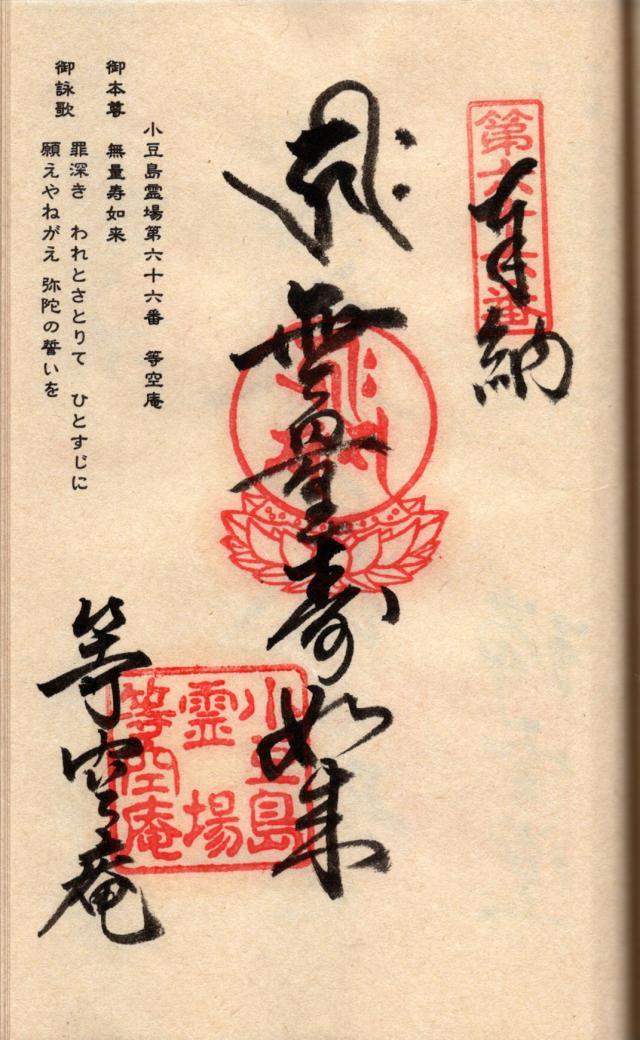 第六十六番
奉納
無量寿如来
小豆島
霊場
等空庵
等空庵
小豆島霊場第六十六番 等空庵
御本尊 無量寿如来
御詠歌 罪深き われとさとりて ひとすじに
願えやねがえ 弥陀の誓いを